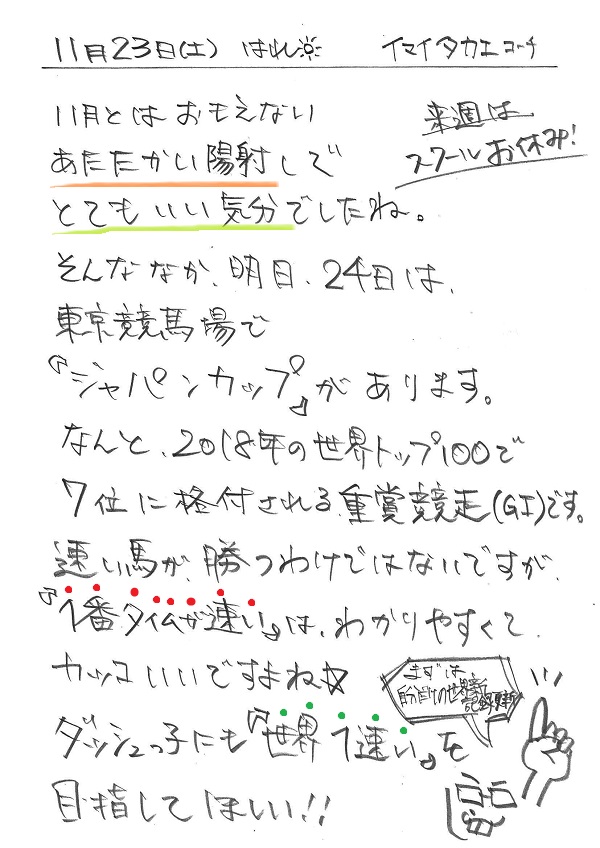 11月23日(土) はれ イマイタカエコーチ
来週は
スクールお休み!
11月とはおもえない
あたたかい陽射しで
とてもいい気分でしたね。
そんななか、明日、24日は、
東京競馬場で
『ジャパンカップ』があります。
なんと、2018年の世界トップ100で
7位に格付される重賞競走(GI)です。
速い馬が、勝つわけではないですが、
『1番タイムが速い』は、わかりやすくて
カッコいいですよね☆
まずは
自分だけの世界新
記録更新
ダッシュっ子にも『世界1速い』を
目指してほしい!!